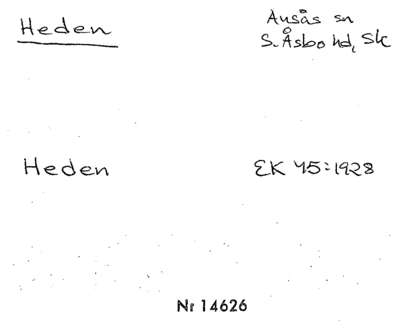 Heden
Ausås sn
S. Åsbo hd, Sk
Heden
EK 45:1928
Nr 14626